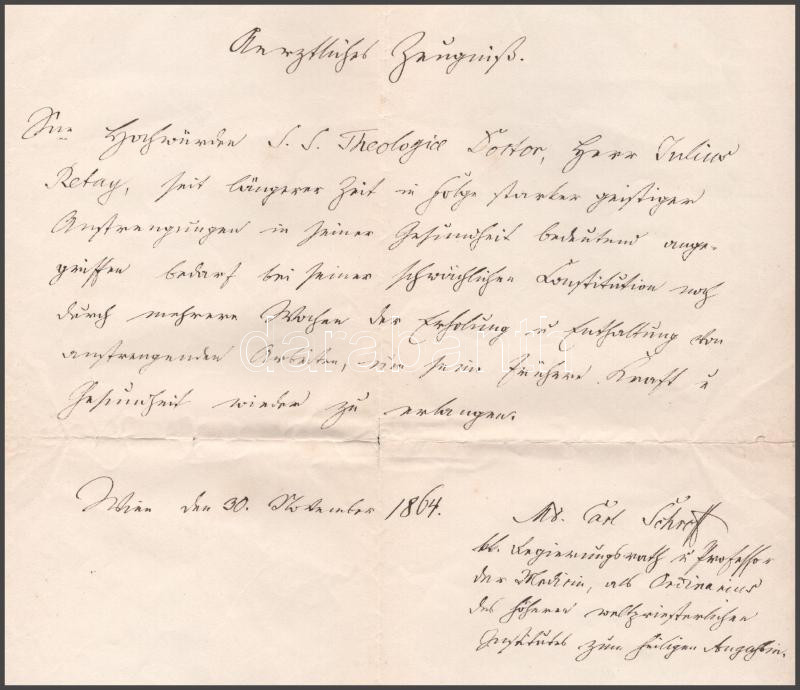 Aerztliches Zeugniß.
Sne Hochwürden S. S. Theologice Doctor, Herr Julius
Retay, seit längerer Zeit in Folge starker geistiger
Anstrengungen in seiner Gesundheit bedeutend ange-
griffen bedarf bei seiner schwächlichen Constitution noch
durch mehrere Wochen der Erholung u Enthaltung von
anstrengenden Arbeiten, um seine frühere Kraft u
Gesundheit wieder zu erlangen.
darabanth
Wien den 30. November 1864.
Md. Carl Schroff
kk. Regierungsrath u Professor
der Medicin, als Ordinarius
des höheren weltpriesterlichen
Institutes zum heiligen Augustin.